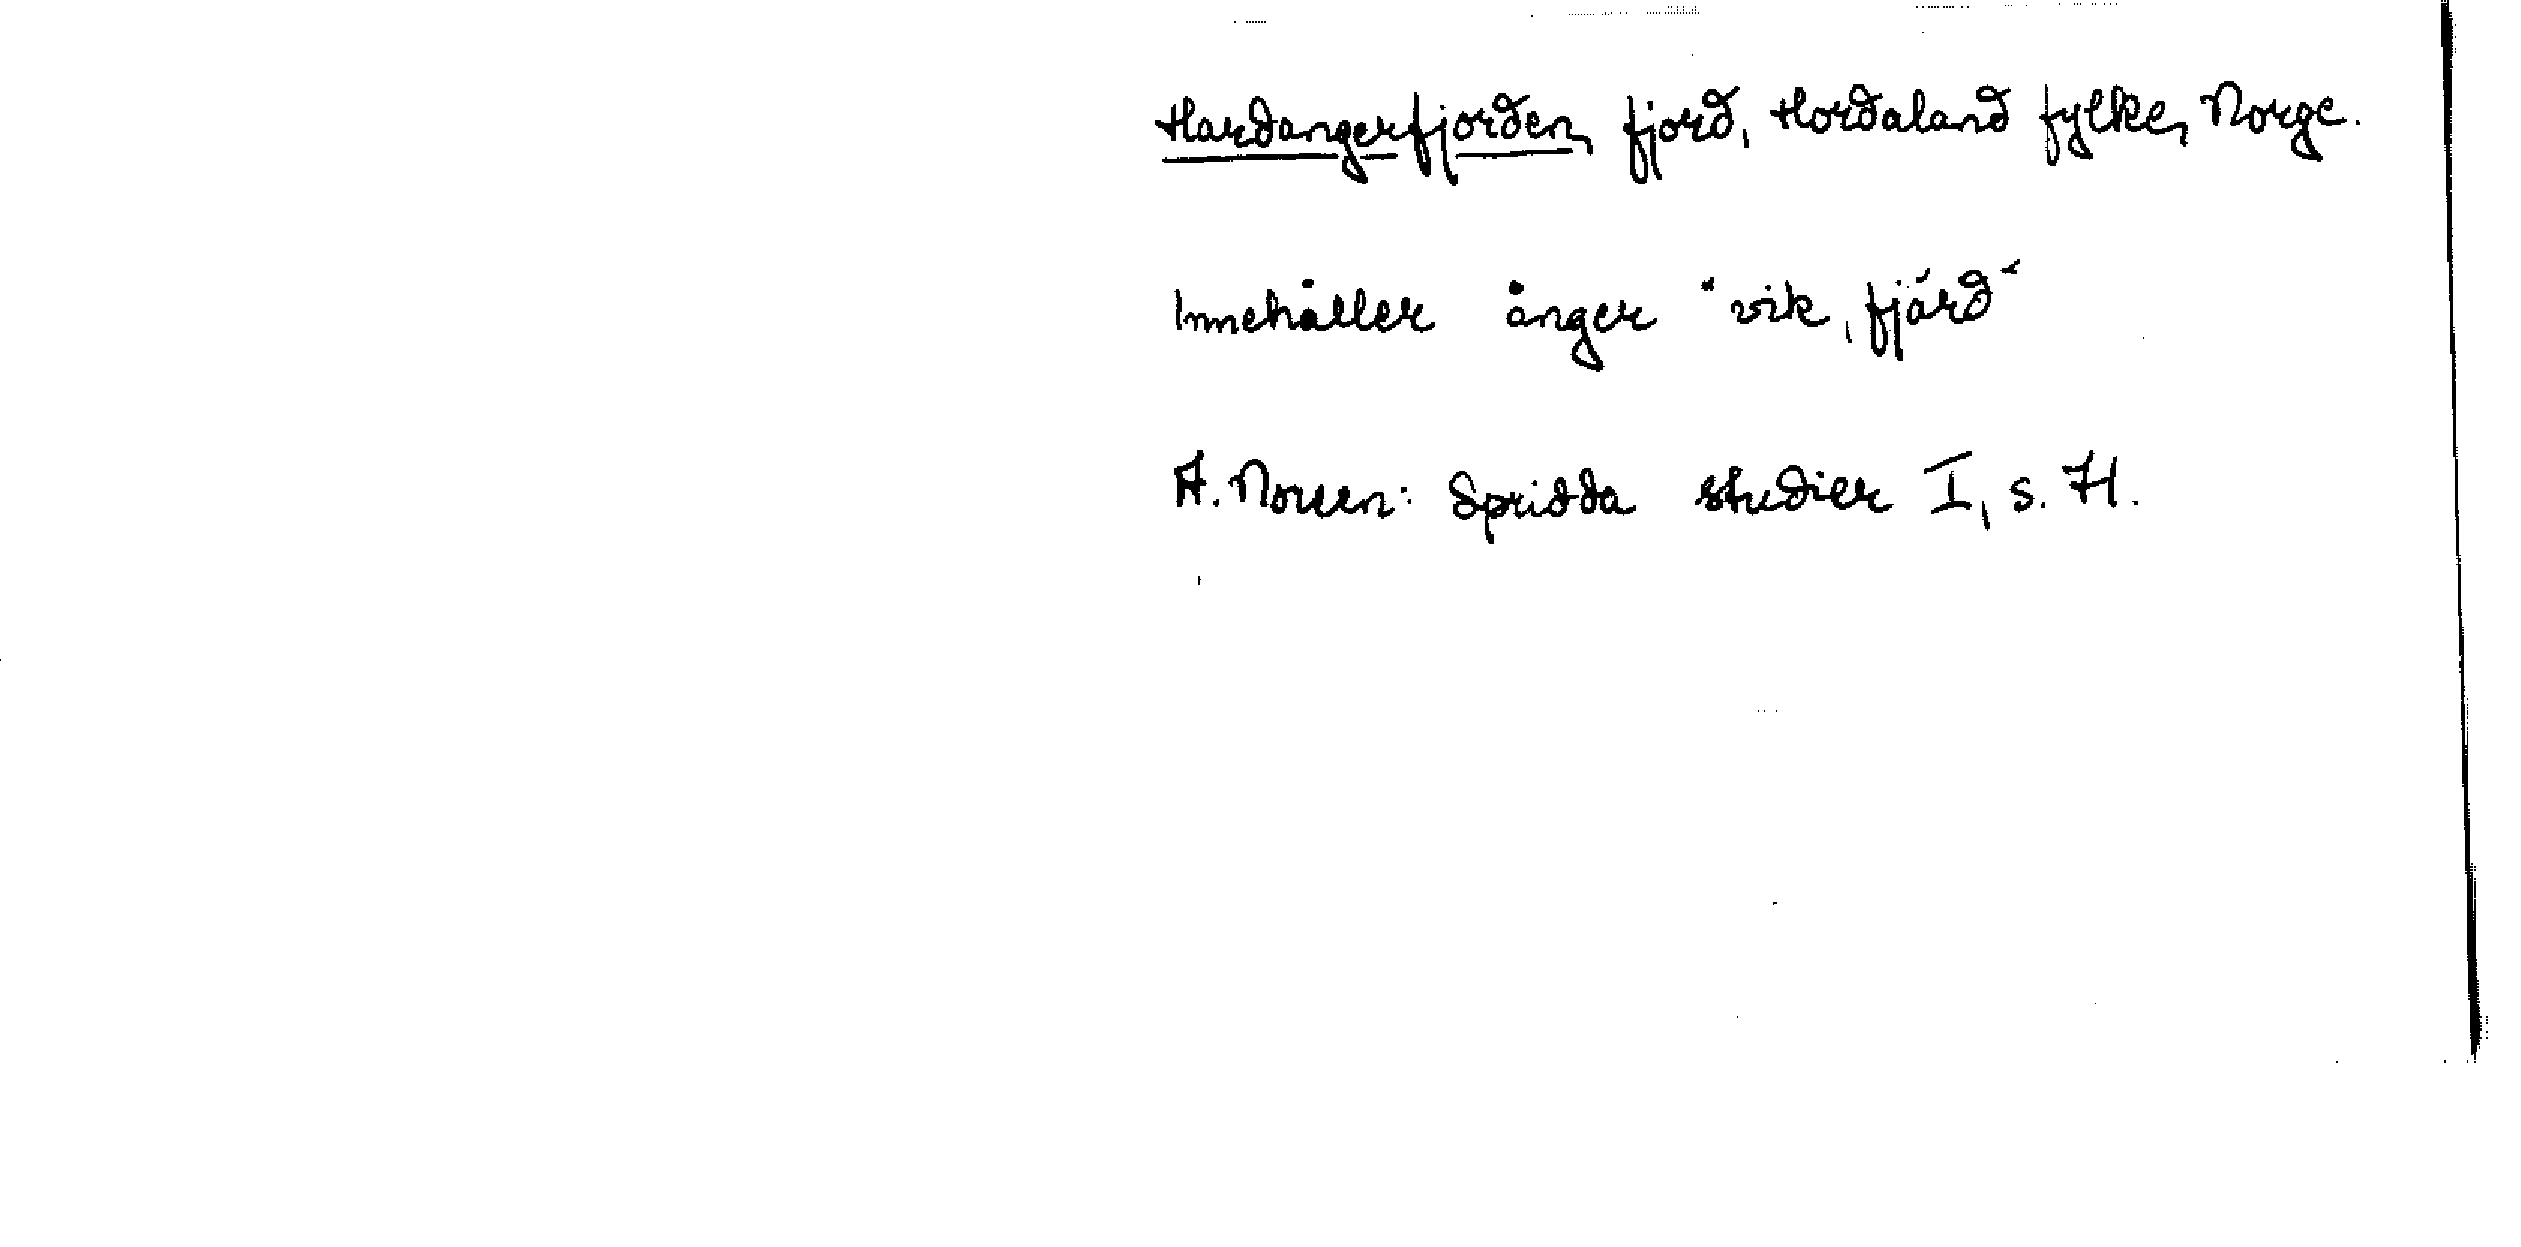 Hardangerfjorden, fjord, Hordaland fylke, Norge.
Innehåller ånger "vik, fjärd"
A. Noreen: Spridda studier I, s. 71.